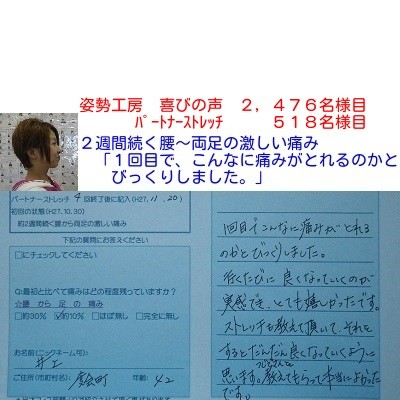 姿勢工房　喜びの声　２，４７６名様目
ﾊﾟｰﾄﾅｰｽﾄﾚｯﾁ　５１８名様目
２週間続く腰～両足の激しい痛み
「１回目で、こんなに痛みがとれるのかと
びっくりしました。」
パートナーストレッチ 4 回終了後に記入(H27. 11 . 20)
初回の状態(H27.10.30)
約2週間続く腰から両足の激しい痛み
下記の質問にお答えください
□にチェックしてください
Q:最初と比べて痛みはどの程度残っていますか?
☆腰 から 足 の 痛み
□約30% ☑約10% □ほぼ無し □完全に無し
お名前(ニックネーム可):
井上
ご住所(市町村名): 倉町 年齢: 42
1回目でこんなに痛みがとれる
のかとびっくりしました。
行くたびに良くなっていくのが
実感でき、とても嬉しかったです。
ストレッチも教えて頂いて、それを
するとだんだん良くなっていくように
思います。教えてもらって本当によかった
です。